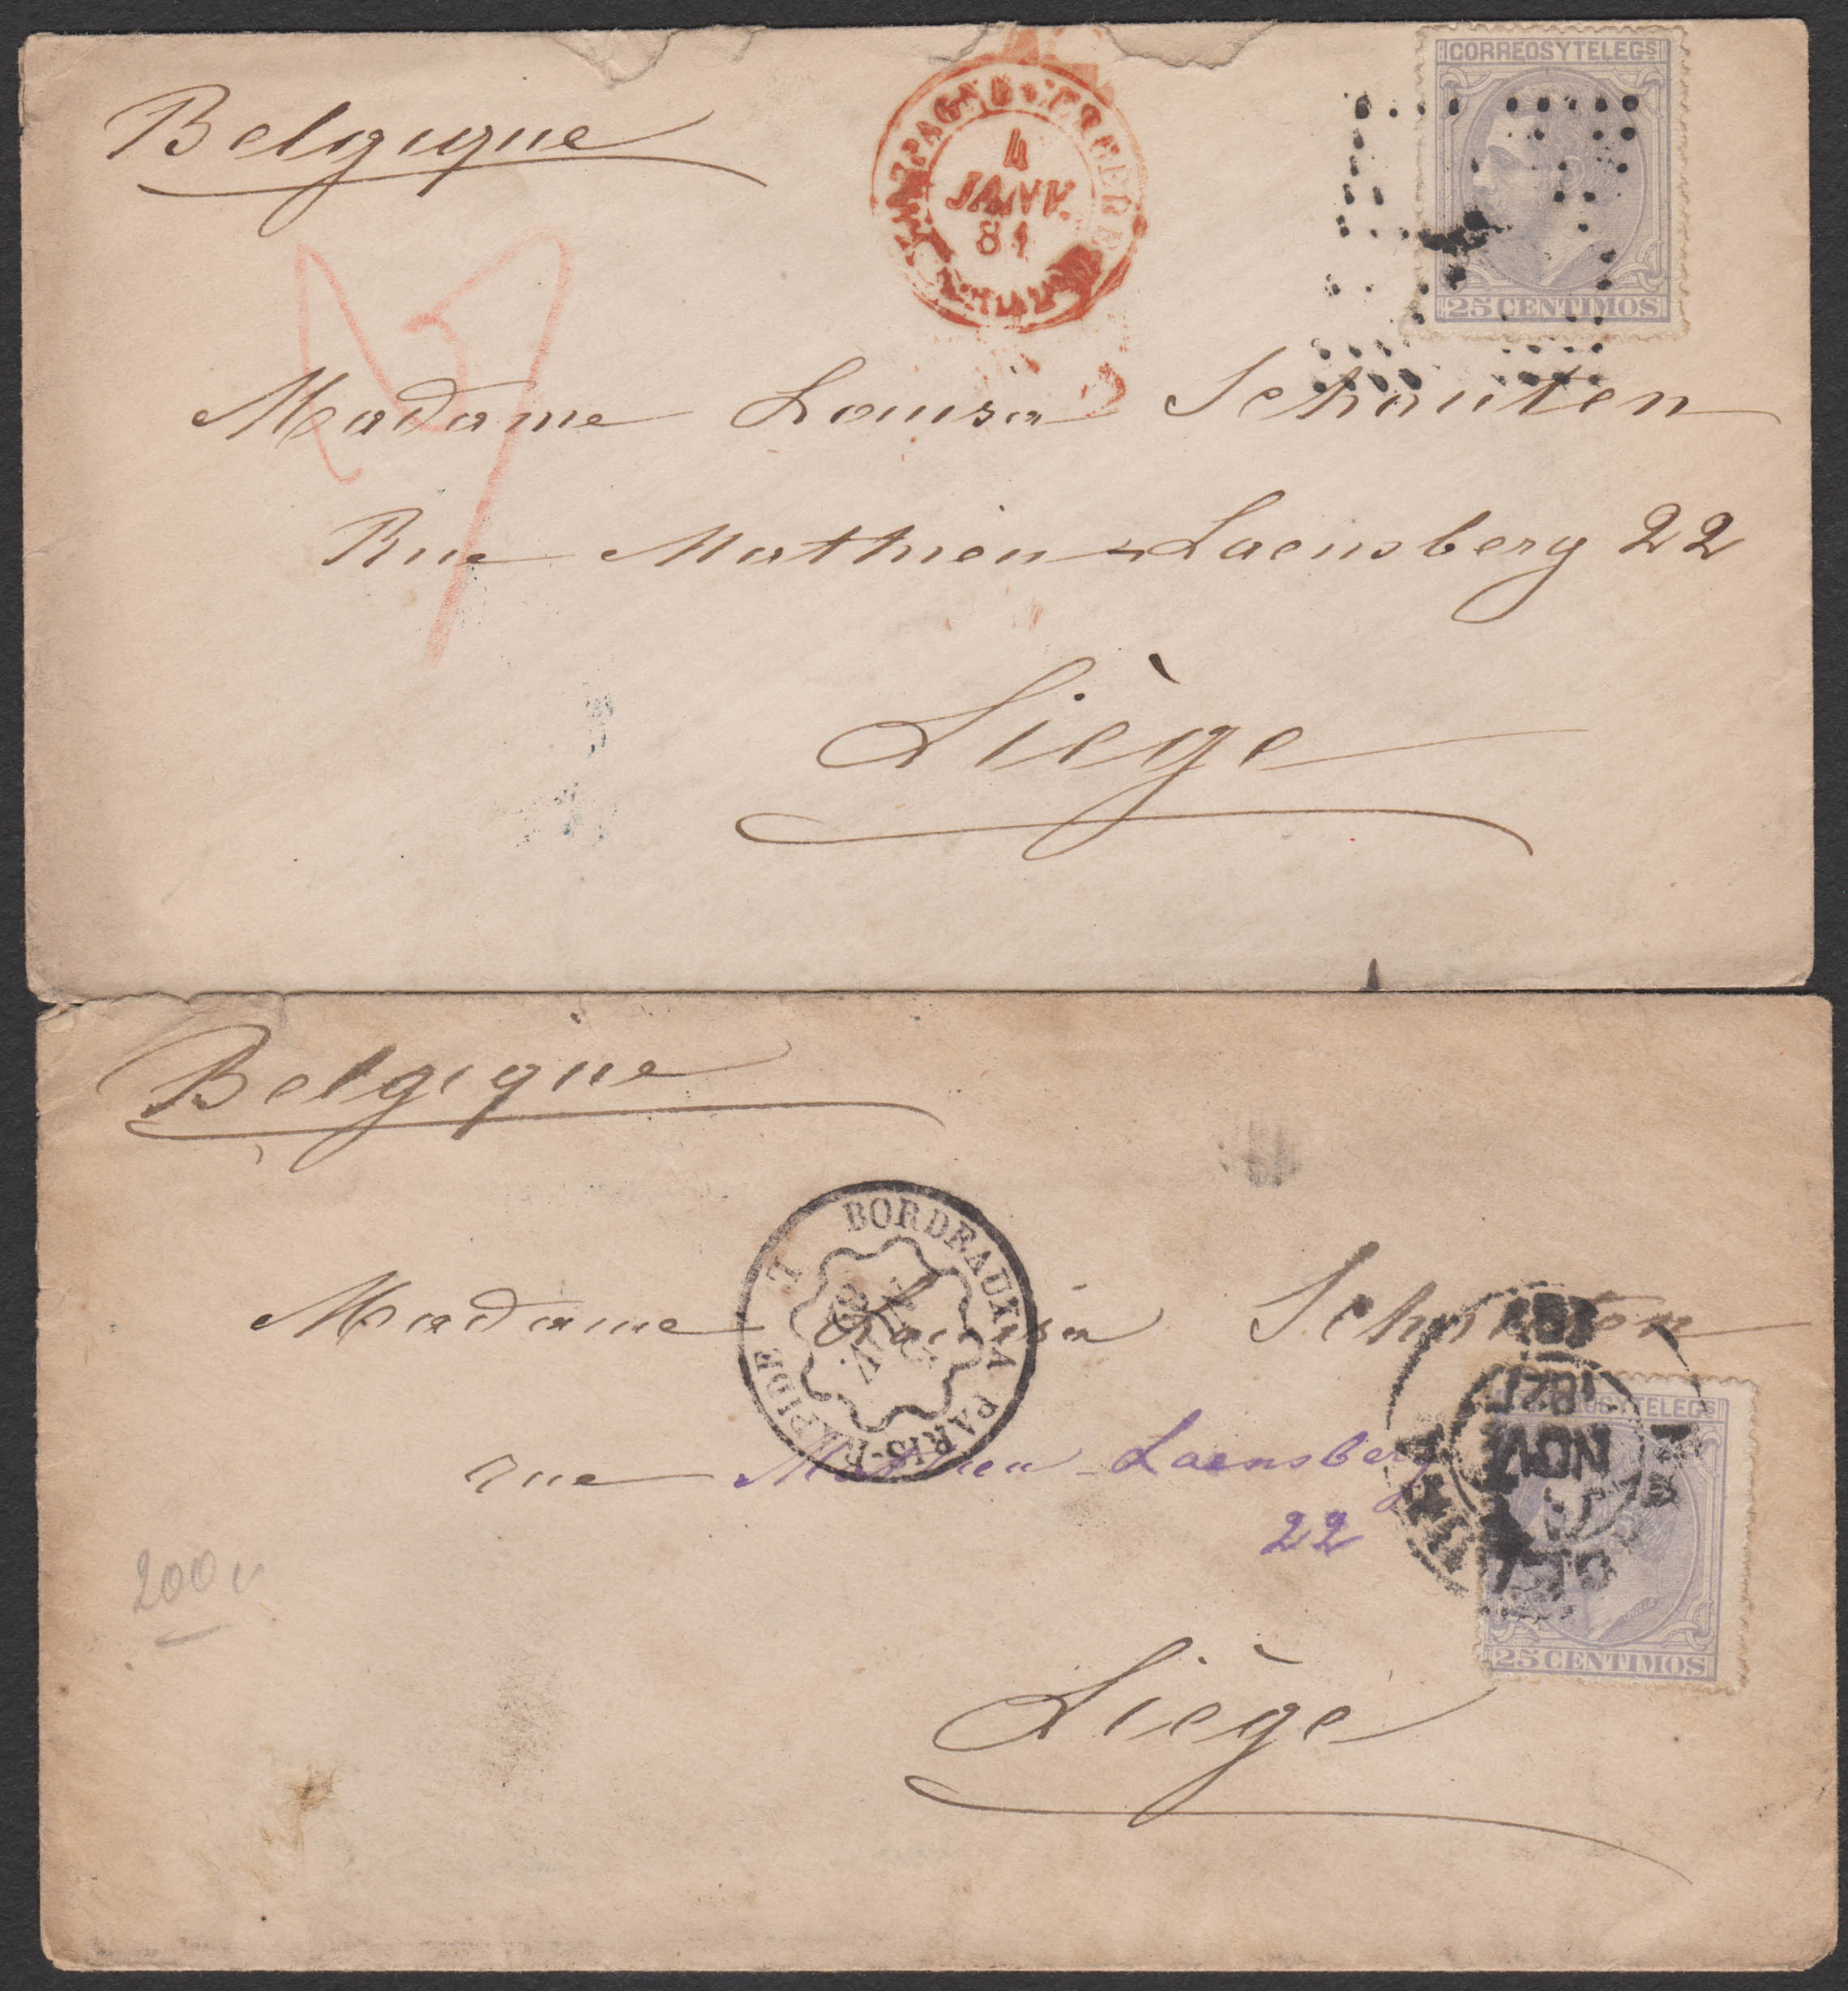 Belgique
4
JANV.
81
CORREOS Y TELEGS
25 CENTIMOS
Madame Louisa Schouten
Rue Mathieu-Laensberg 22
Liège
Belgique
BORDEAUX A PARIS-RAPIDE
Madame Louisa Schouten
rue Mathieu-Laensberg
22
NOV
82
YTELEGS
25 CENTIMOS
200
Liège